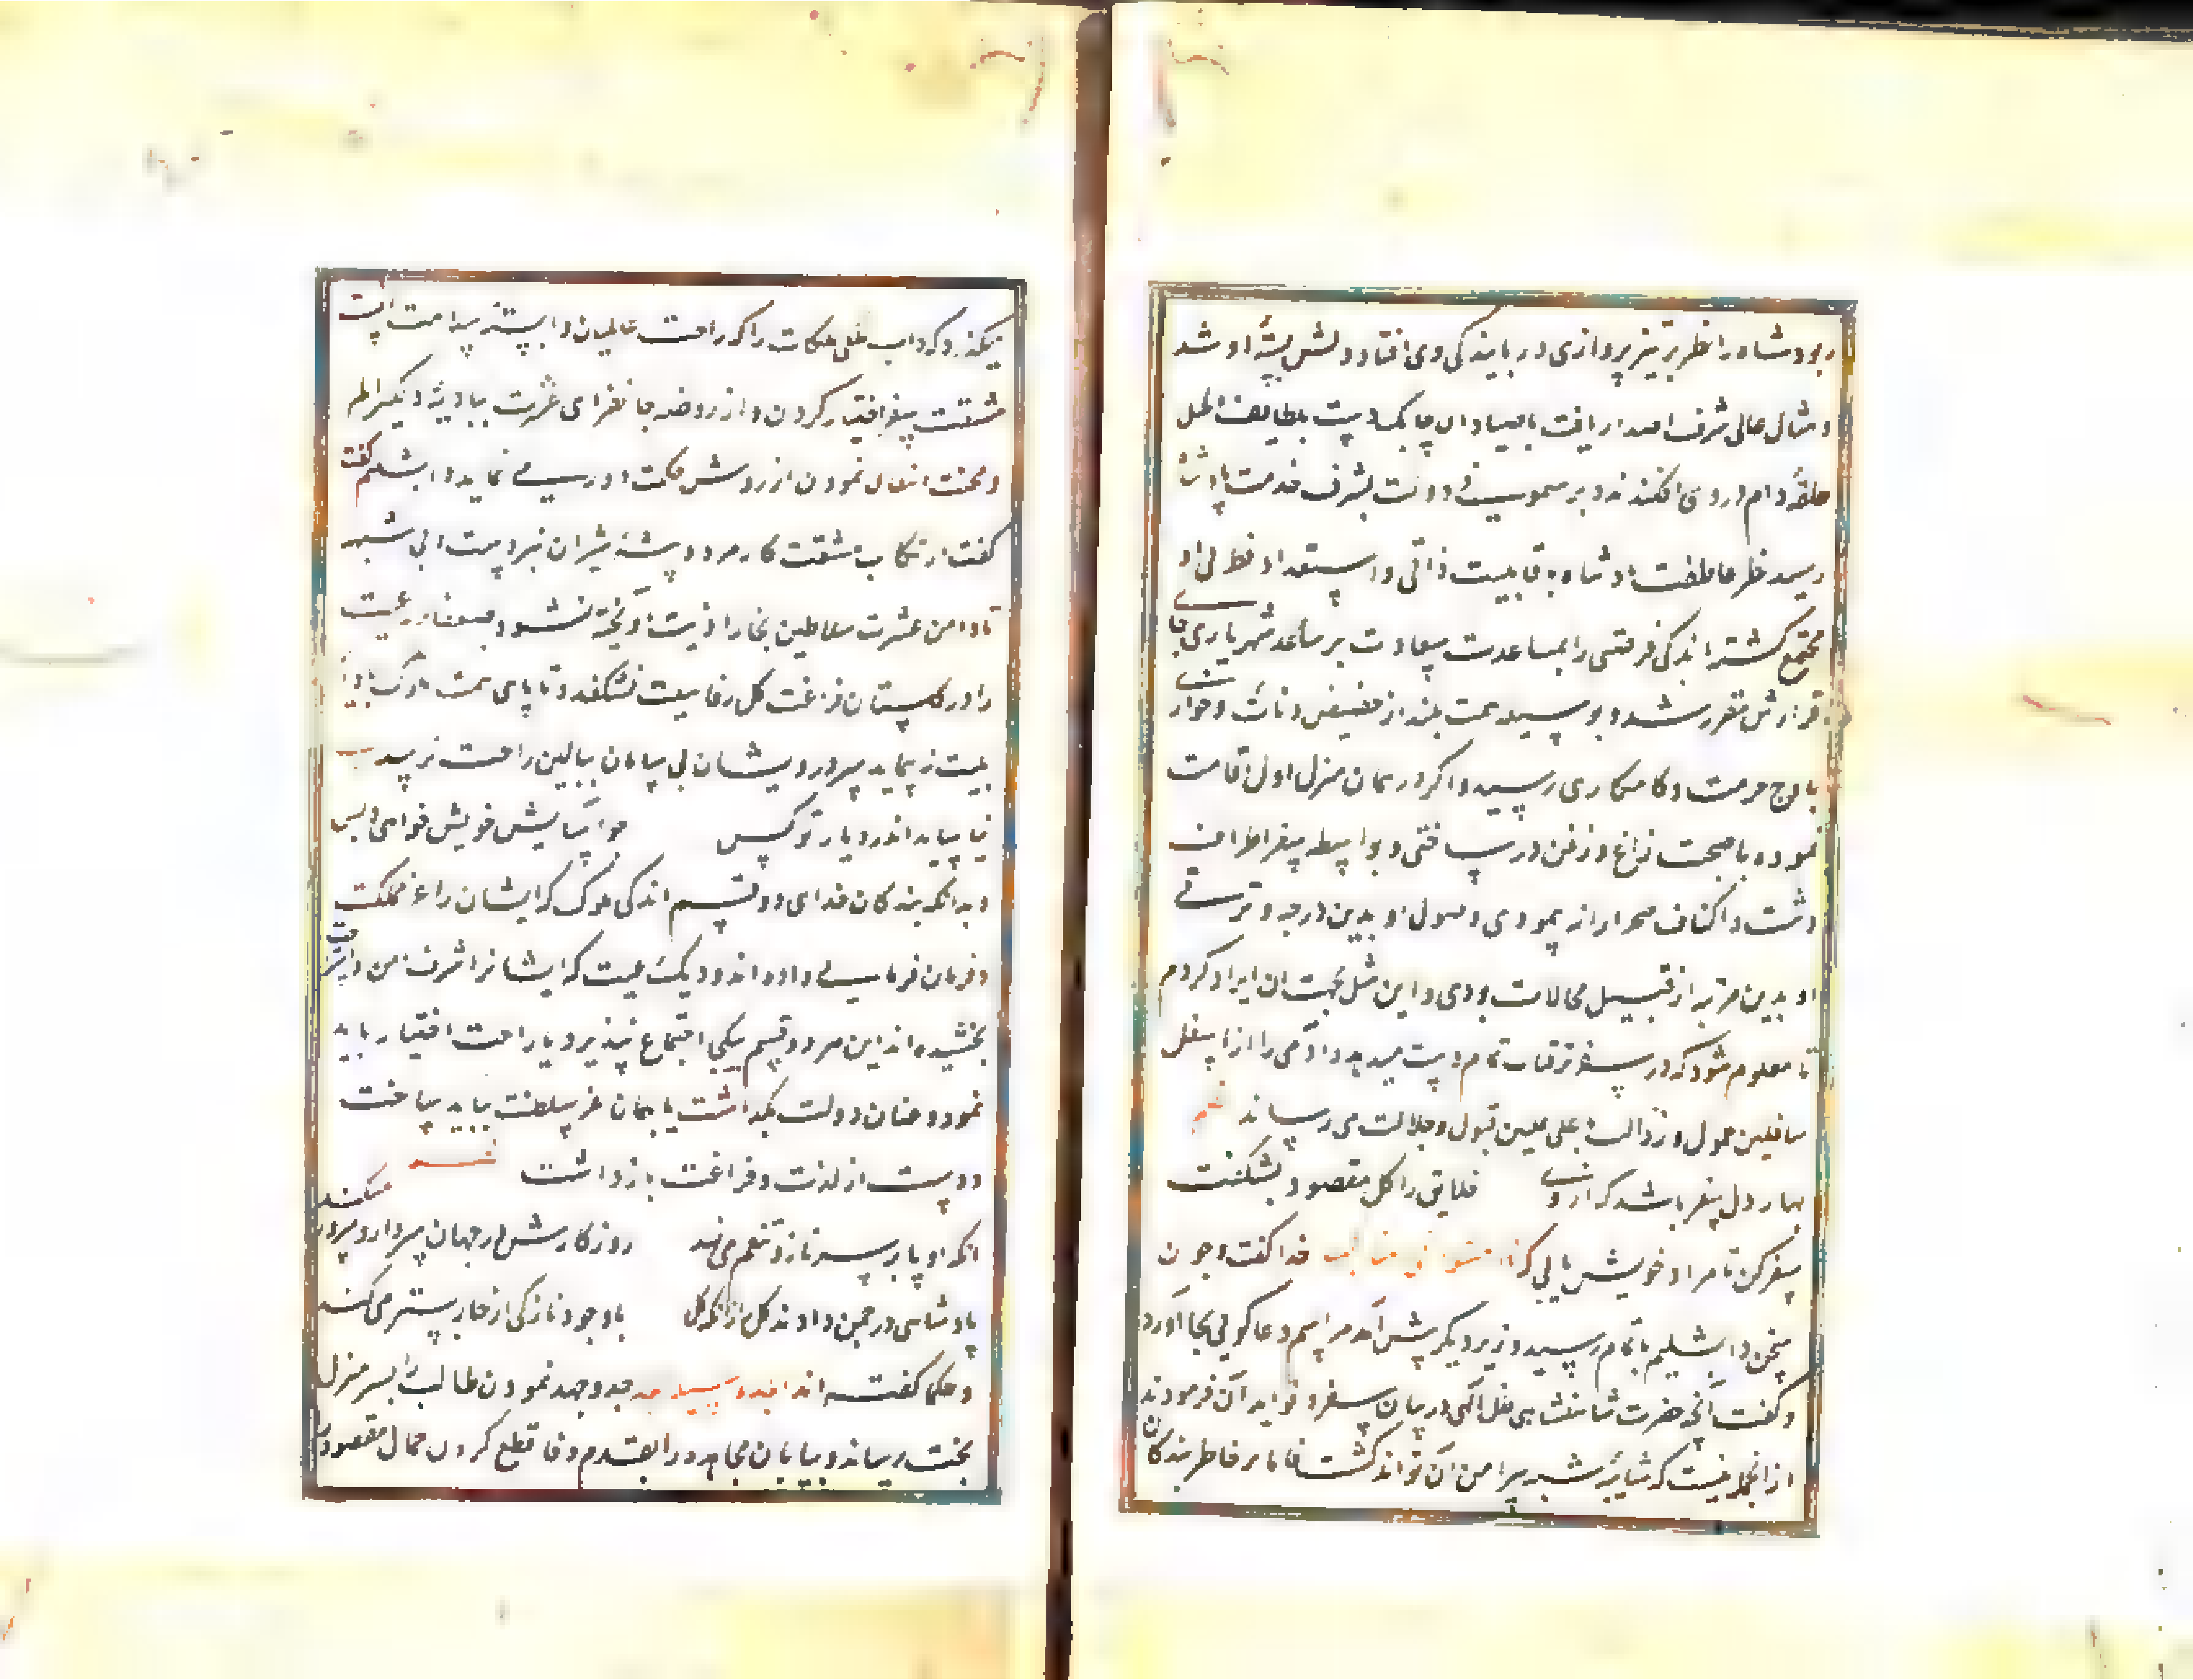 ربود شاه را نظر بر تیز پروازی و ربایندگی وی افتاد و دلش بستهٔ او شد
و مثال عالی شرف اصدار یافت تا صیادان چابک دست بلطایف الحیل
حلقه دام در وی افکندند و برهنمونی دولت بشرف خدمت پادشاه
رسید نظر عاطفت پادشاه به قابلیت ذاتی و استعداد فطری او
مجتمع گشته اندک فرصتی را بمساعدت سعادت بر ساعد شهریاری جای
قرارش مقرر شد و بوسیله همت بلند از حضیض دنائت و خواری
باوج حرمت و کامکاری رسید و اگر در همان منزل اول اقامت
نموده با صحبت زاغ و زغن در ساختی و بواسطه سفر اطراف
دشت و اکناف صحرا را نه پیمودی وصول او بدین درجه و ترقی
او بدین مرتبه از قبیل محالات بودی و این مثل بجهت ان ایراد کردم
تا معلوم شود که در سفر ترقیات تمام دست میدهد و آدمی را از اسفل
سافلین خمول و رذالت باعلی علیین قبول و جلالت می رساند
بهار دل سفر باشد که از وی خلایق را گل مقصود بشکفت
سفر کن تا مراد خویش یابی که خدا گفت و چون
سخن دابشلیم باتمام رسید وزیر دیگر پیش آمد مراسم دعا گوئی بجا آورد
و گفت آنچه حضرت شاهنشاهی ظل الهی در بیان سفر و فواید آن فرمودند
از انجمله نیست که شایبه شبه پیرامن آن تواند گشت فاما بر خاطر بندگان
میگذرد که ذات ملک ملکات را که راحت عالمیان وابسته سلامت اوست
مشقت سفر اختیار کردن و از روضه جانفزای عشرت ببادیه الم
و محنت انتقال نمودن از روش حکمت دور می نماید دابشلیم گفت
گفت ارتکاب مشقت کار مرد و پیشهٔ شیران نبردست و بی شبه
تا دامن عشرت سلاطین بخار اذیت آویخته نشود ضعفاء رعیت
را در گلستان فراغت گل رفاهیت نشکفد و تا پای همت ملوک بادیه
بلیت نه پیماید سر درویشان بی سامان ببالین راحت نرسد
نیاساید اندر دیار تو کس چو آسایش خویش خواهی و بس
و بدانکه بندگان خدای دو قسم اند یکی ملوک که ایشان را عز مملکت
و فرمان فرمایی داده اند و دیگر رعیت که ایشانرا شرف امن و راحت
بخشیده اند این هر دو قسم یکجا اجتماع نپذیرد یا راحت اختیار باید
نمود و عنان دولت بگذاشت یا بهمان عز سلطنت بباید ساخت
و دست از لذت و فراغت باز داشت
انکه او پا بر سر ناز و تنعم می نهد روزگارش در جهان سردار و سرور میکند
پادشاهی در چمن دادند گل را زانکه گل با وجود نازکی از خار بستر می کند
و حکما گفته اند جد و جهد نمودن طالب را بسر منزل
بخت رساند و بیابان مجاهده را بقدم وفا قطع کردن جمال مقصود را